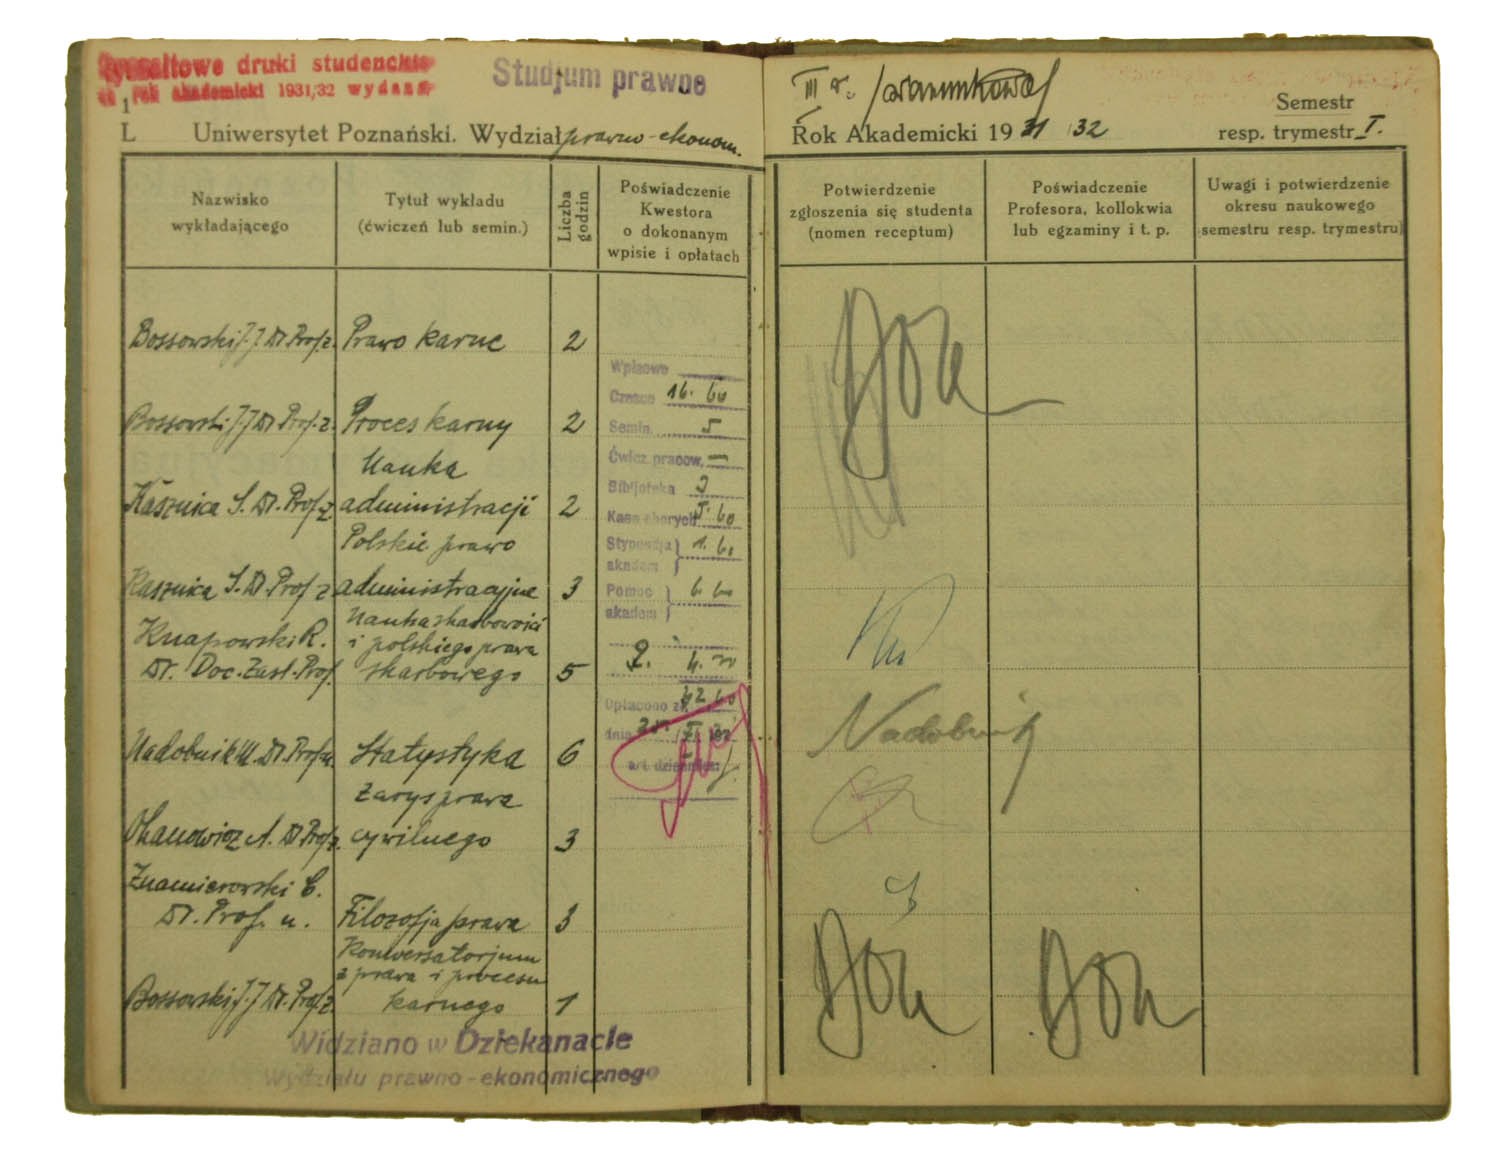 Ryczałtowe druki studenckie
na rok akademicki 1931/32 wydano
Studjum prawne
1
L
Uniwersytet Poznański. Wydział prawno-ekonom.
Nazwisko
wykładającego
Tytuł wykładu
(ćwiczeń lub semin.)
Liczba
godzin
Poświadczenie
Kwestora
o dokonanym
wpisie i opłatach
Bossowski J. J. Dr. Prof. z. Prawo karne 2
Bossowski J. J. Dr. Prof. z. Proces karny 2
Nauka
Kasznica S. Dr. Prof. z. administracji 2
Polskie prawo
Kasznica S. Dr. Prof z administracyjne 3
Nauka skarbowości
Knapowski R. i polskiego prawa
Dr. Doc. Zast. Prof. skarbowego 5
Nadobnik M. Dr. Prof. n. Statystyka 6
Zarys prawa
Ohanowicz A. Dr Prof. z. cywilnego 3
Znamierowski C.
Dr. Prof. n. Filozofja prawa 3
Konwersatorjum
z prawa i procesu
Bossowski J. J. Dr. Prof. z. karnego 1
Wpisowe
Czesne 16. 60
Semin. 5
Ćwicz. pracow. —
Bibljoteka 3
Kasa chorych 5. 60
Stypendja 1. 60
akadem.
Pomoc 6 60
akadem
Opłacono zł. 42 60
dnia
Widziano w Dziekanacie
Wydziału prawno-ekonomicznego
III r.
Rok Akademicki 1931/32
Semestr
resp. trymestr I.
Potwierdzenie
zgłoszenia się studenta
(nomen receptum)
Poświadczenie
Profesora, kollokwia
lub egzaminy i t. p.
Uwagi i potwierdzenie
okresu naukowego
(semestru resp. trymestru)
Nadobnik